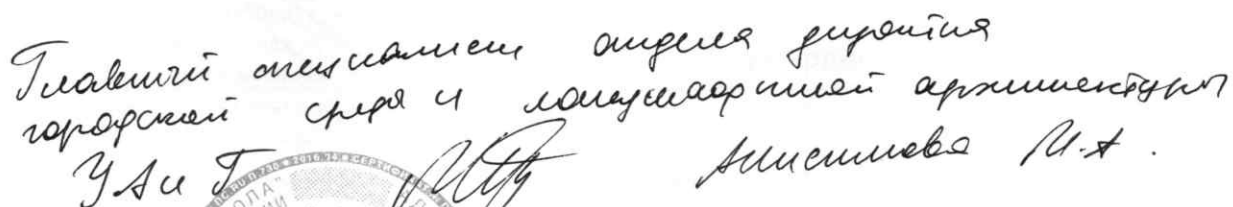 Главный специалист отдела дизайна
городской среды и ландшафтной архитектуры
УАиГ Анисимова М.А.